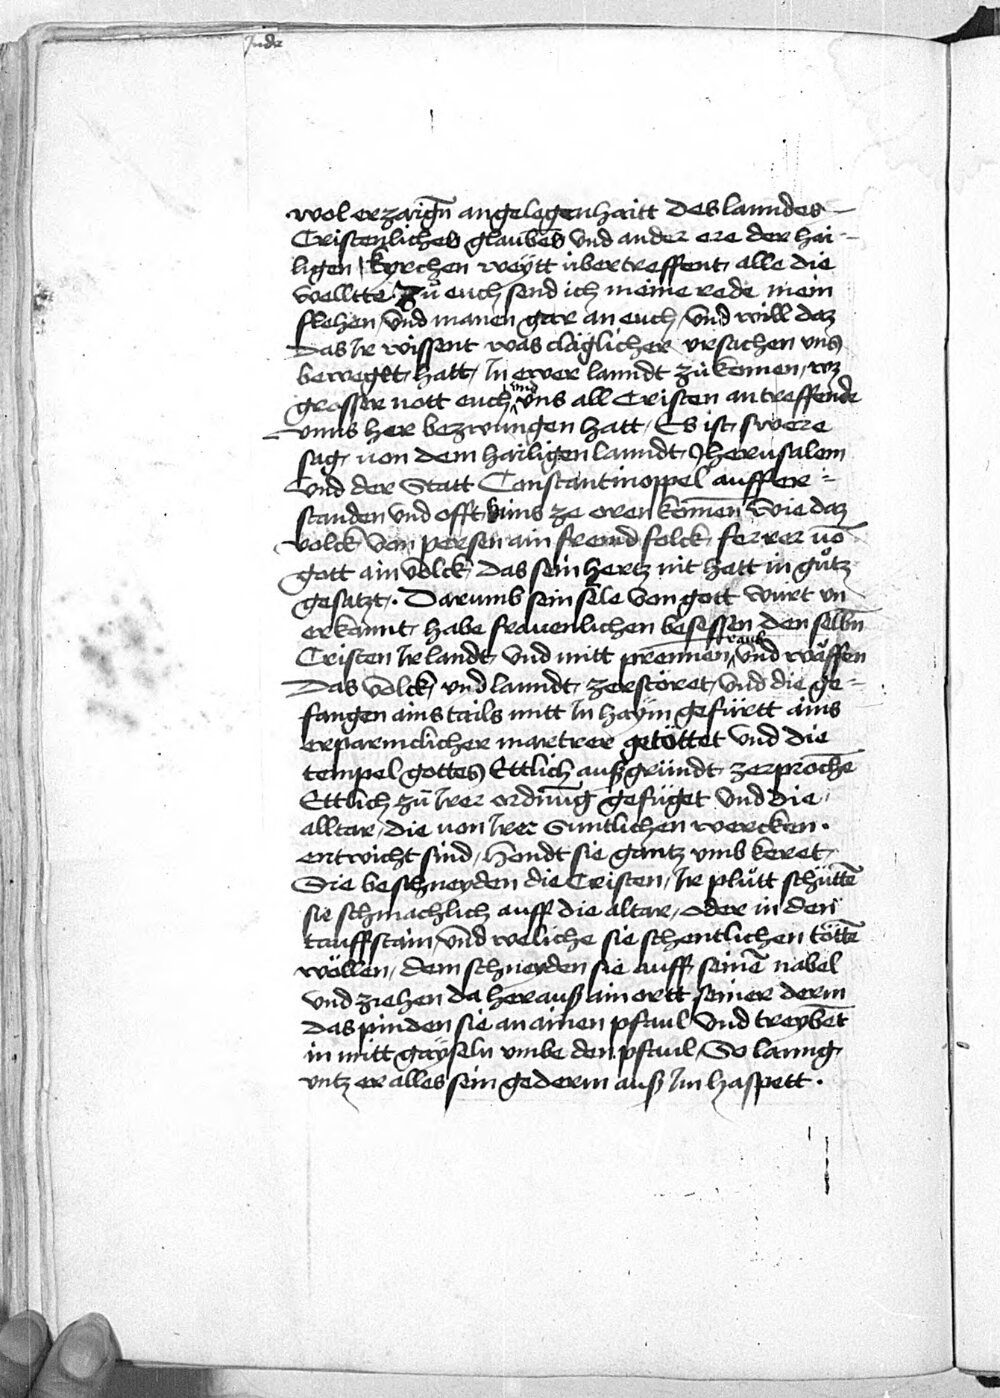 wol erzaign̄ angelegenhaitt des lanndes
Cristenliches glaubens vnd ander ere der hai-
ligen kyrchen weytt übertreffent alle die
welltte Zů euch send ich meine rede mein
flehen vnd manen gar an euch vnd will daz
Das Ir wissent was claglicher vrsachen vns
bewegtt hatt In ewer lanndt zů komen wz
grosser nott euch vnd vns all Cristen antreffende
vnns her bezwungen hatt Es ist swere
sag von dem hailigen lanndt Jherusalem
vnd der Statt Constantinoppel auffer=
standen vnd offt vnns ze oren komen wie daz
volck von persen ain fremd folck ferrer vō
gott ain volck das sein hertz nit hatt in gůtz
gesatzt . Darumb sein sele von gott wirt vn
erkannt habe frauenlichen besessen den selbn̄
Cristen Ir landt vnd mitt prennen raub vnd waffen
Das volck vnd lanndt zerstöret vnd die ge=
fangen ains tails mitt In haym gefürtt ains
erparmclicher martrer getöttet vnd die
tempel gottes Ettlich auß gründt zerproche
Ettlich zů Irer ordnung gefüget vnd die
alltar die von Irer Suntlichen wercken .
entwicht sind Hondt sie gantz vmb keret
Die beschneyden die Cristen Ir plůtt schütte
sie schmachlich auff die altar oder in den
tauffstain vnd weliche sie schentlichen tötte
wöllen dem schneyden sie auff seinē nabel
vnd ziehen da herauß ain ortt seiner derm
das pinden sie an ainen pfaul vnd treybēt
in mitt gayseln vmbe den pfaul So lanng
vntz er alles sein gederm auß Im haspett .